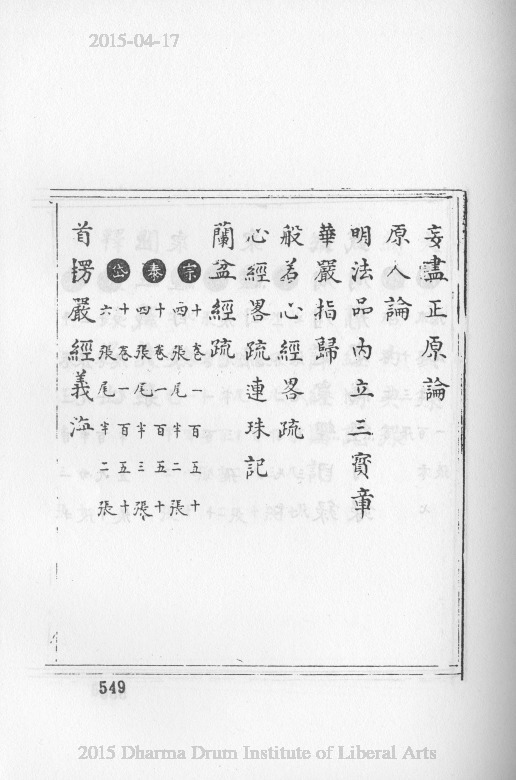 2015-04-17
妄盡正原論
原人論
明法品內立三寶章
華嚴指歸
般若心經畧疏
心經畧疏連珠記
蘭盆經疏
宗 十卷一百五十四張尾半二張
泰 十卷一百五十四張尾半三張
岱 十卷一百五十六張尾半二張
首楞嚴經義海
549
2015 Dharma Drum Institute of Liberal Arts